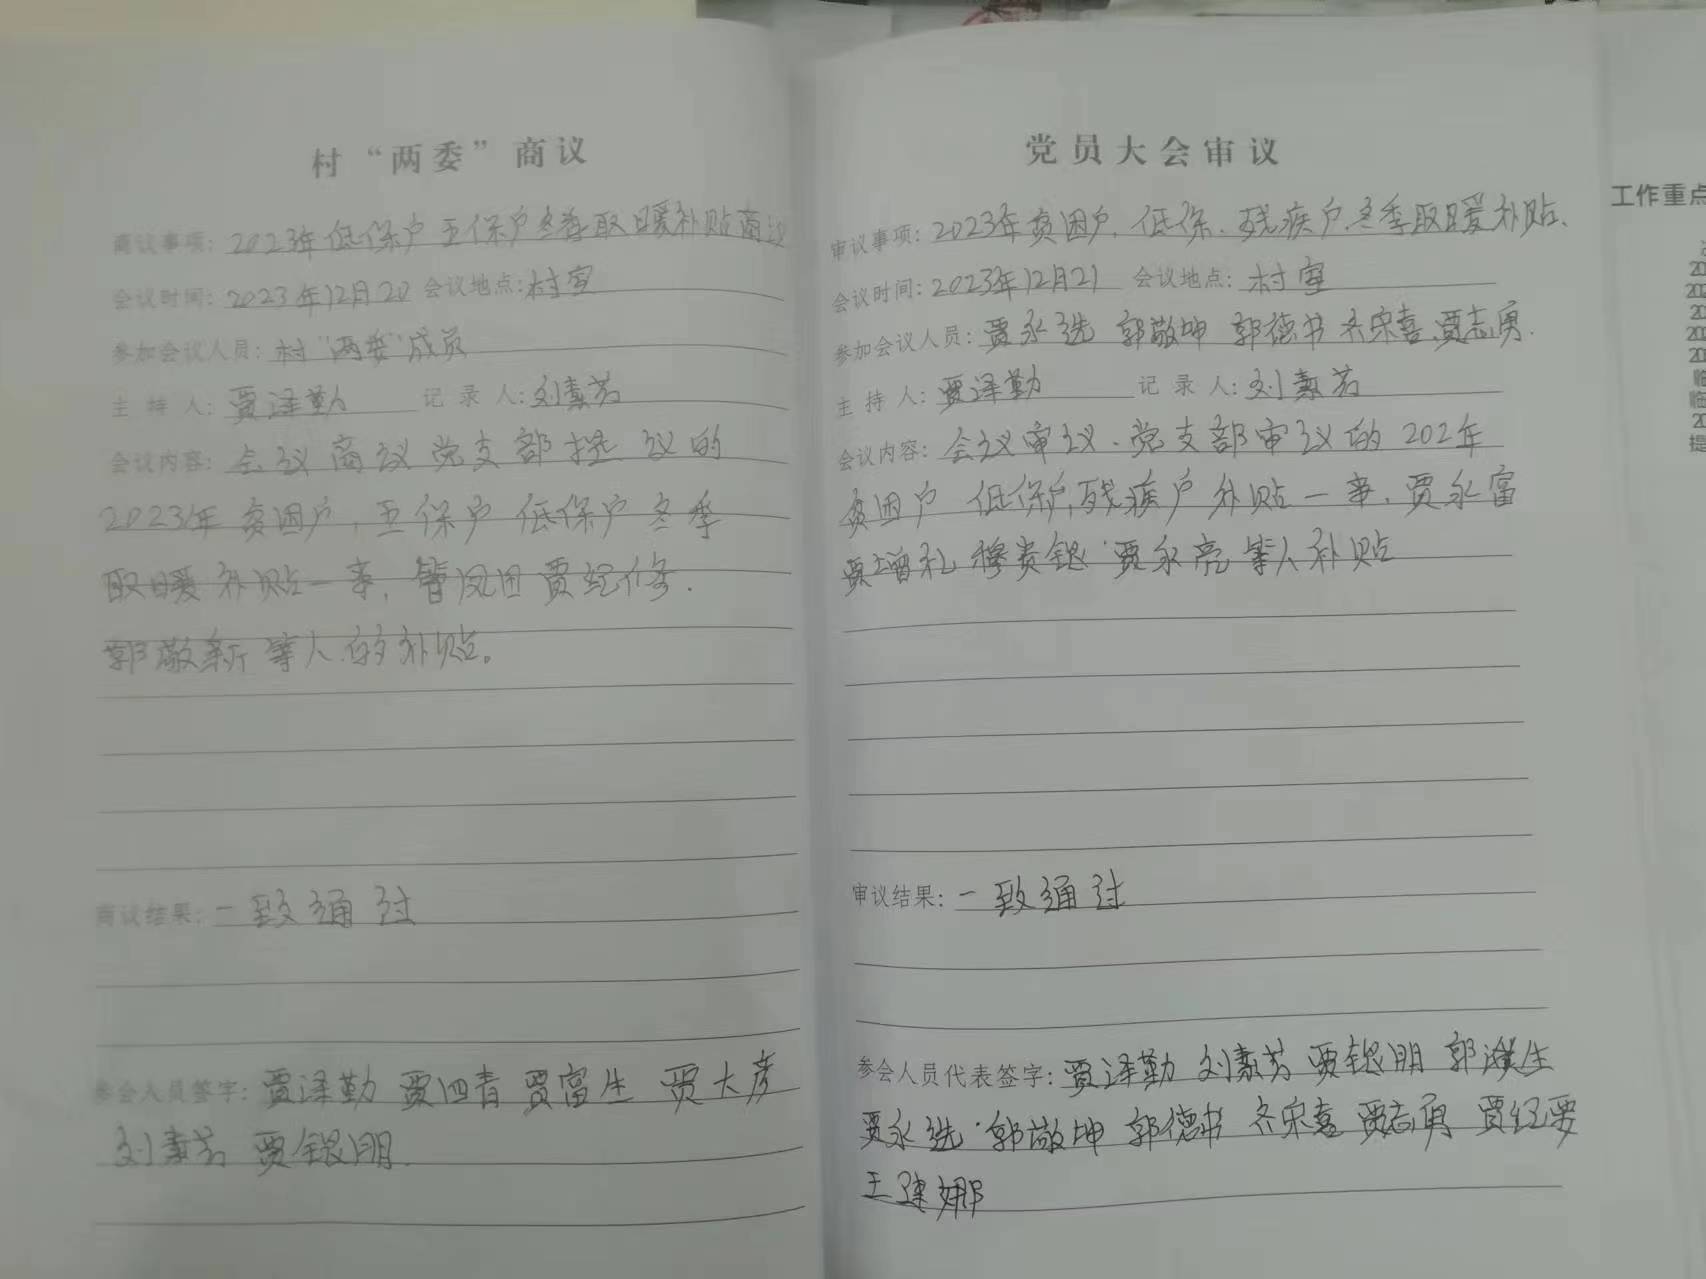 村“两委”商议
商议事项：2023年低保户 五保户冬季取暖补贴商议
会议时间：2023年12月20 会议地点：村室
参加会议人员：村“两委”成员
主 持 人：贾泽勤 记 录 人：刘素芳
会议内容：会议商议党支部提议的
2023年贫困户，五保户 低保户冬季
取暖补贴一事，贾纪修.
郭敬新等人的补贴。
商议结果：一致通过
参会人员签字：贾泽勤 贾四青 贾富生 贾大彦
刘素芳 贾银朋.
党员大会审议
审议事项：2023年贫困户、低保、残疾户、冬季取暖补贴、
会议时间：2023年12月21 会议地点：村室
参加会议人员：贾永选 郭敬坤 郭德书 齐宋喜 贾志勇.
主 持 人：贾泽勤 记 录 人：刘素芳
会议内容：会议审议、党支部审议的202年
贫困户 低保户，残疾户补贴一事，贾永富
贾增礼 穆贵银 贾永亮等人补贴
审议结果：一致通过
参会人员代表签字：贾泽勤 刘素芳 贾银朋 郭生
贾永选 郭敬坤 郭德书 齐宋喜 贾志勇 贾纪要
王建娜
工作重点